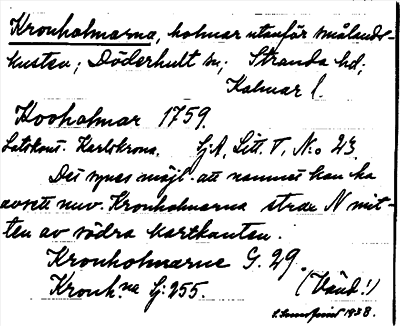 Kronholmarna, holmar utanför smålands-
kusten; Döderhult sn; Stranda hd;
Kalmar l.
Kooholmar 1759.
Lotskont. Karlskrona. Sj.A, Litt. T, N:o 23.
Det synes möjl. att namnet kan ha
avsett nuv. Kronholmarna strax N mit-
ten av södra kartkanten.
Kronholmarne G. 29.
Kronh.na Sj: 255. (Vänd!)
1938.